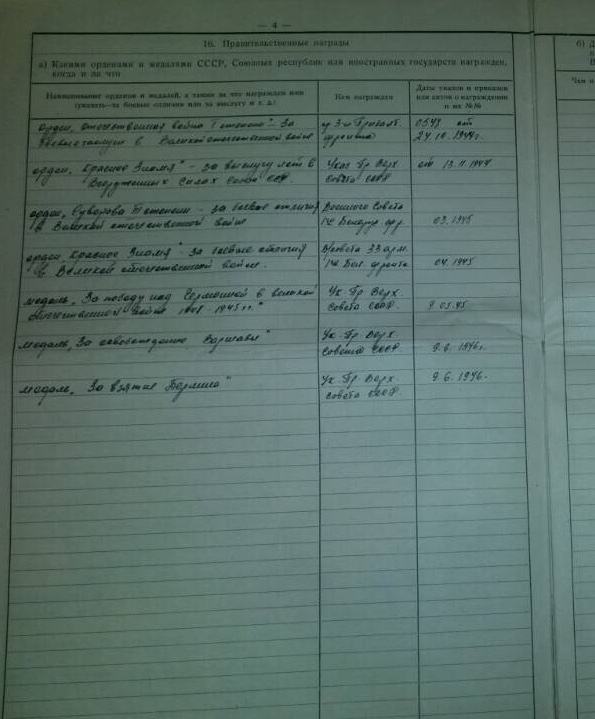 — 4 —
16. Правительственные награды
а) Какими орденами и медалями СССР, Союзных республик или иностранных государств награжден,
когда и за что
б) Д
Наименование орденов и медалей, а также за что награжден или
(указать—за боевые отличия или за выслугу и т. д.)
Кем награжден
Даты указов и приказов
или актов о награждении
и их №№
орден „Отечественная война I степени" – За
боевые заслуги в Великой отечественной войне
пр. 3-й Прибалт.
фронта
от
24.10.1944г.
орден „Красное Знамя" – за выслугу лет в
Вооруженных Силах Союза ССР
Указ Пр. Верх.
Совета СССР
от 13.11.1944
орден „Суворова степени – за боевые отличия
в Великой отечественной войне
Военного Совета
1го Белорус. фр.
03.1945
орден „Красное Знамя" – за боевые отличия
в Великой отечественной войне.
33 арм.
1го Бел. фронта
04.1945
медаль „За победу над Германией в великой
отечественной войне 1941–1945 гг."
Ук. Пр. Верх.
Совета СССР
9.05.45
медаль „За освобождение Варшавы"
Ук. Пр. Верх.
Совета СССР
9.6.1946г.
медаль „За взятие Берлина"
Ук. Пр. Верх.
Совета СССР
9.6.1946.